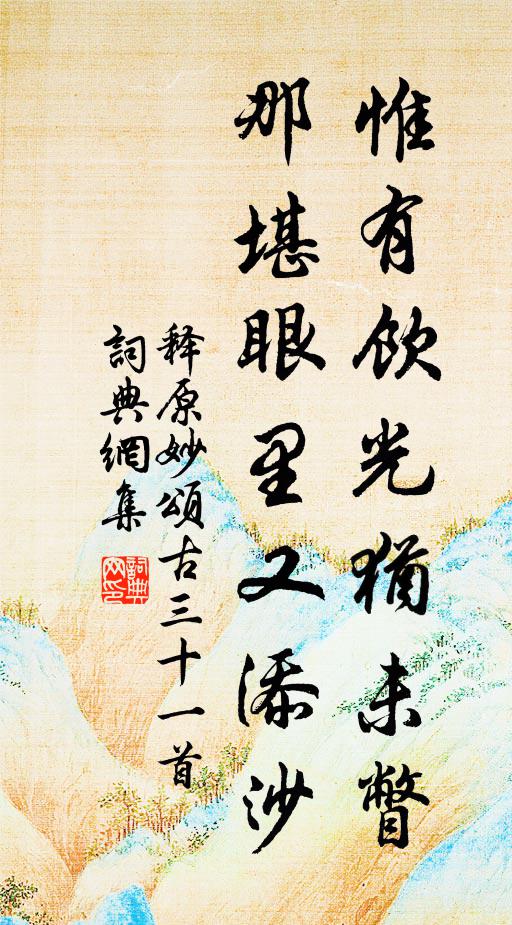 惟有飲光猶未瞥
那堪眼里又添沙
释原妙頌古三十一首
詞典網集
詞典网印